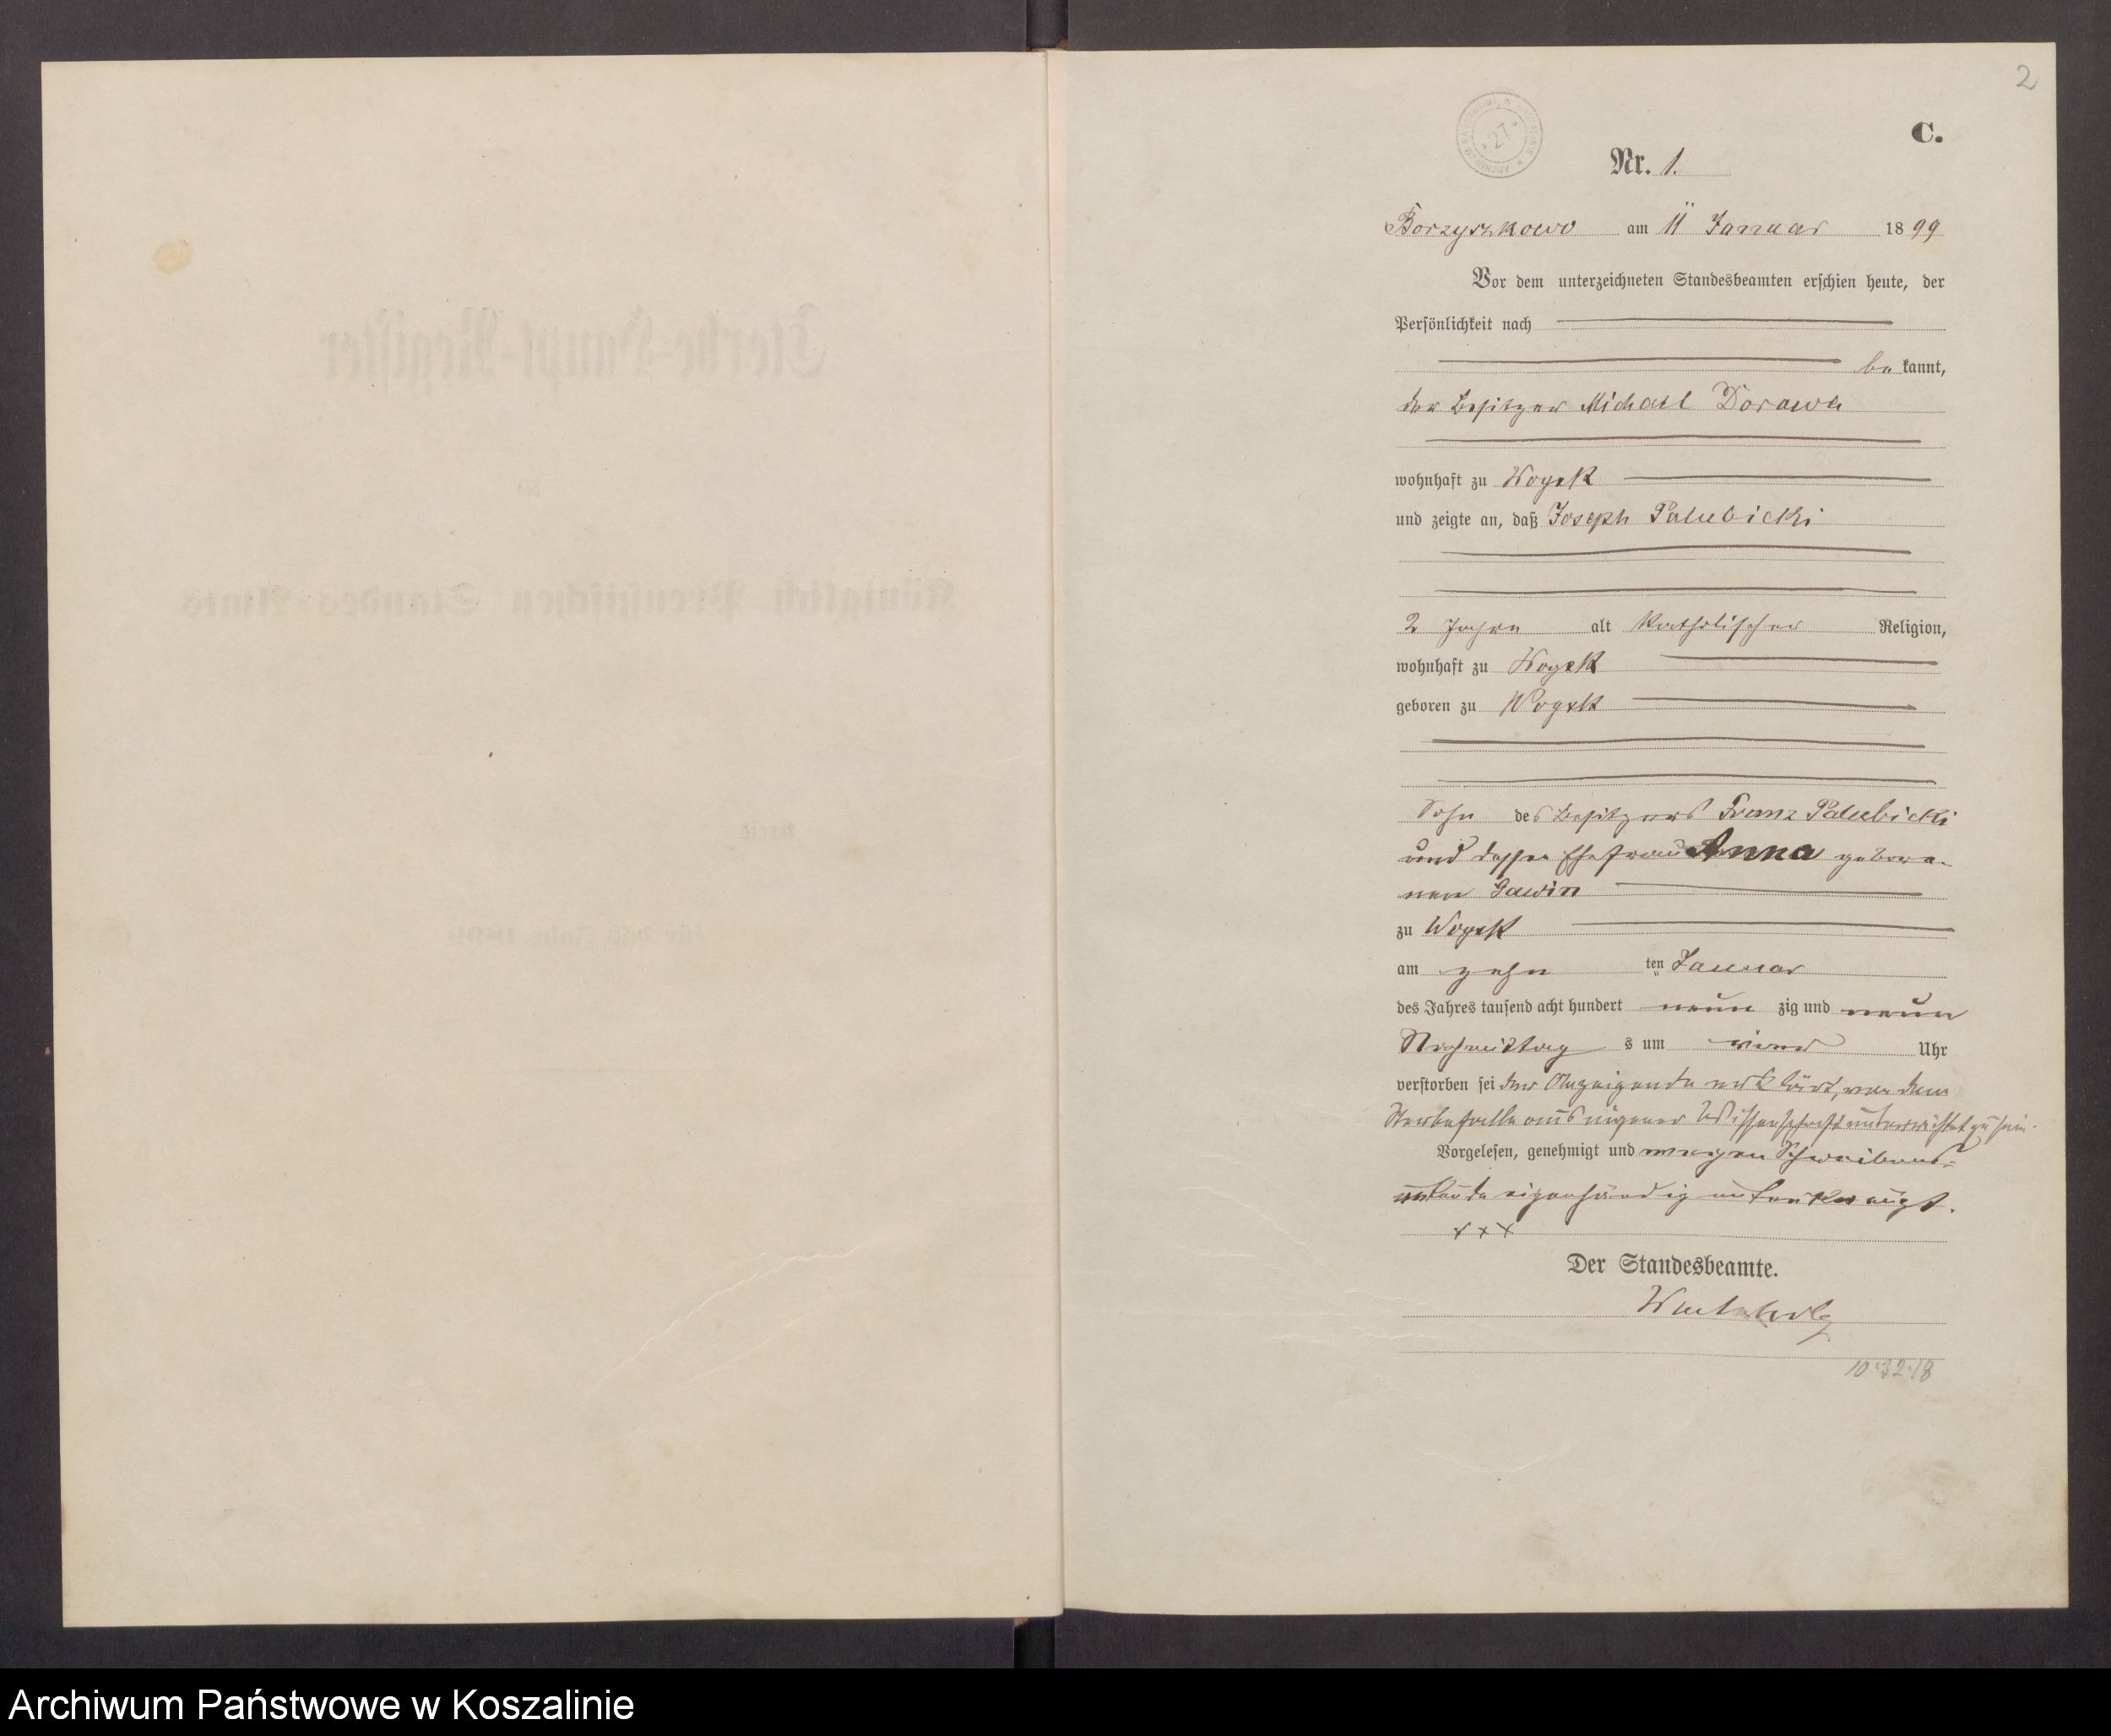 2
C.
27
Nr. 1.
Borzyszkowo am 11 Januar 1899
Vor dem unterzeichneten Standesbeamten erschien heute, der
Persönlichkeit nach
be kannt,
der Besitzer Michael Dorawa
wohnhaft zu Woysk
und zeigte an, daß Joseph Palubicki
2 Jahre alt katholischer Religion,
wohnhaft zu Woysk
geboren zu Woysk
Sohn des Besitzers Franz Palubicki
und dessen Ehefrau Anna gebore-
nen Gawin
zu Woysk
am zehn ten Januar
des Jahres tausend acht hundert neun zig und neun
Nachmittag s um vier Uhr
verstorben sei der Anzeigende erklärt, von dem
Sterbefalle aus eigener Wissenschaft unterrichtet zu sein.
Vorgelesen, genehmigt und wegen Schreibens-
unkunde eigenhändig unterkreuzt.
+++
Der Standesbeamte.
10 32 18
Sterbe-Haupt-Register
des
Königlich Preußischen Standes-Amts
Kreis
für das Jahr 1899
Archiwum Państwowe w Koszalinie